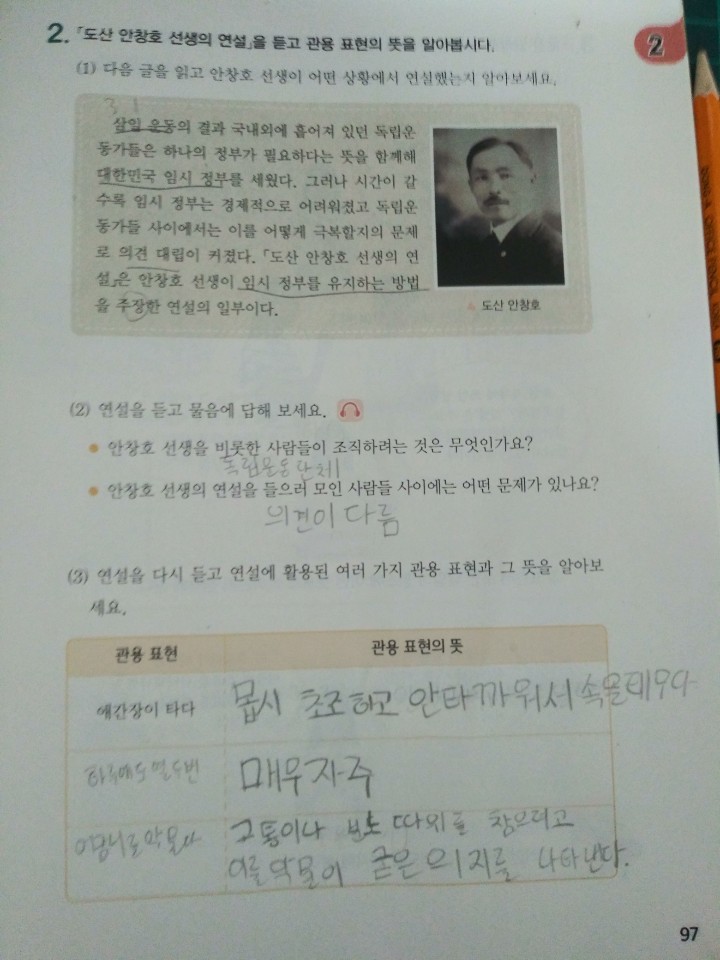 2. 「도산 안창호 선생의 연설」을 듣고 관용 표현의 뜻을 알아봅시다.
2
(1) 다음 글을 읽고 안창호 선생이 어떤 상황에서 연설했는지 알아보세요.
3 1
삼일 운동의 결과 국내외에 흩어져 있던 독립운
동가들은 하나의 정부가 필요하다는 뜻을 함께해
대한민국 임시 정부를 세웠다. 그러나 시간이 갈
수록 임시 정부는 경제적으로 어려워졌고 독립운
동가들 사이에서는 이를 어떻게 극복할지의 문제
로 의견 대립이 커졌다. 「도산 안창호 선생의 연
설」은 안창호 선생이 임시 정부를 유지하는 방법
을 주장한 연설의 일부이다.
도산 안창호
(2) 연설을 듣고 물음에 답해 보세요.
안창호 선생을 비롯한 사람들이 조직하려는 것은 무엇인가요?
독립운동단체
안창호 선생의 연설을 들으러 모인 사람들 사이에는 어떤 문제가 있나요?
의견이 다름
(3) 연설을 다시 듣고 연설에 활용된 여러 가지 관용 표현과 그 뜻을 알아보
세요.
관용 표현
관용 표현의 뜻
애간장이 타다
몹시 초조하고 안타까워서 속을 태우다
하루에도 열두번
매우 자주
고통이나 분노 따위를 참으려고
이를 악물며 굳은 의지를 나타낸다.
97